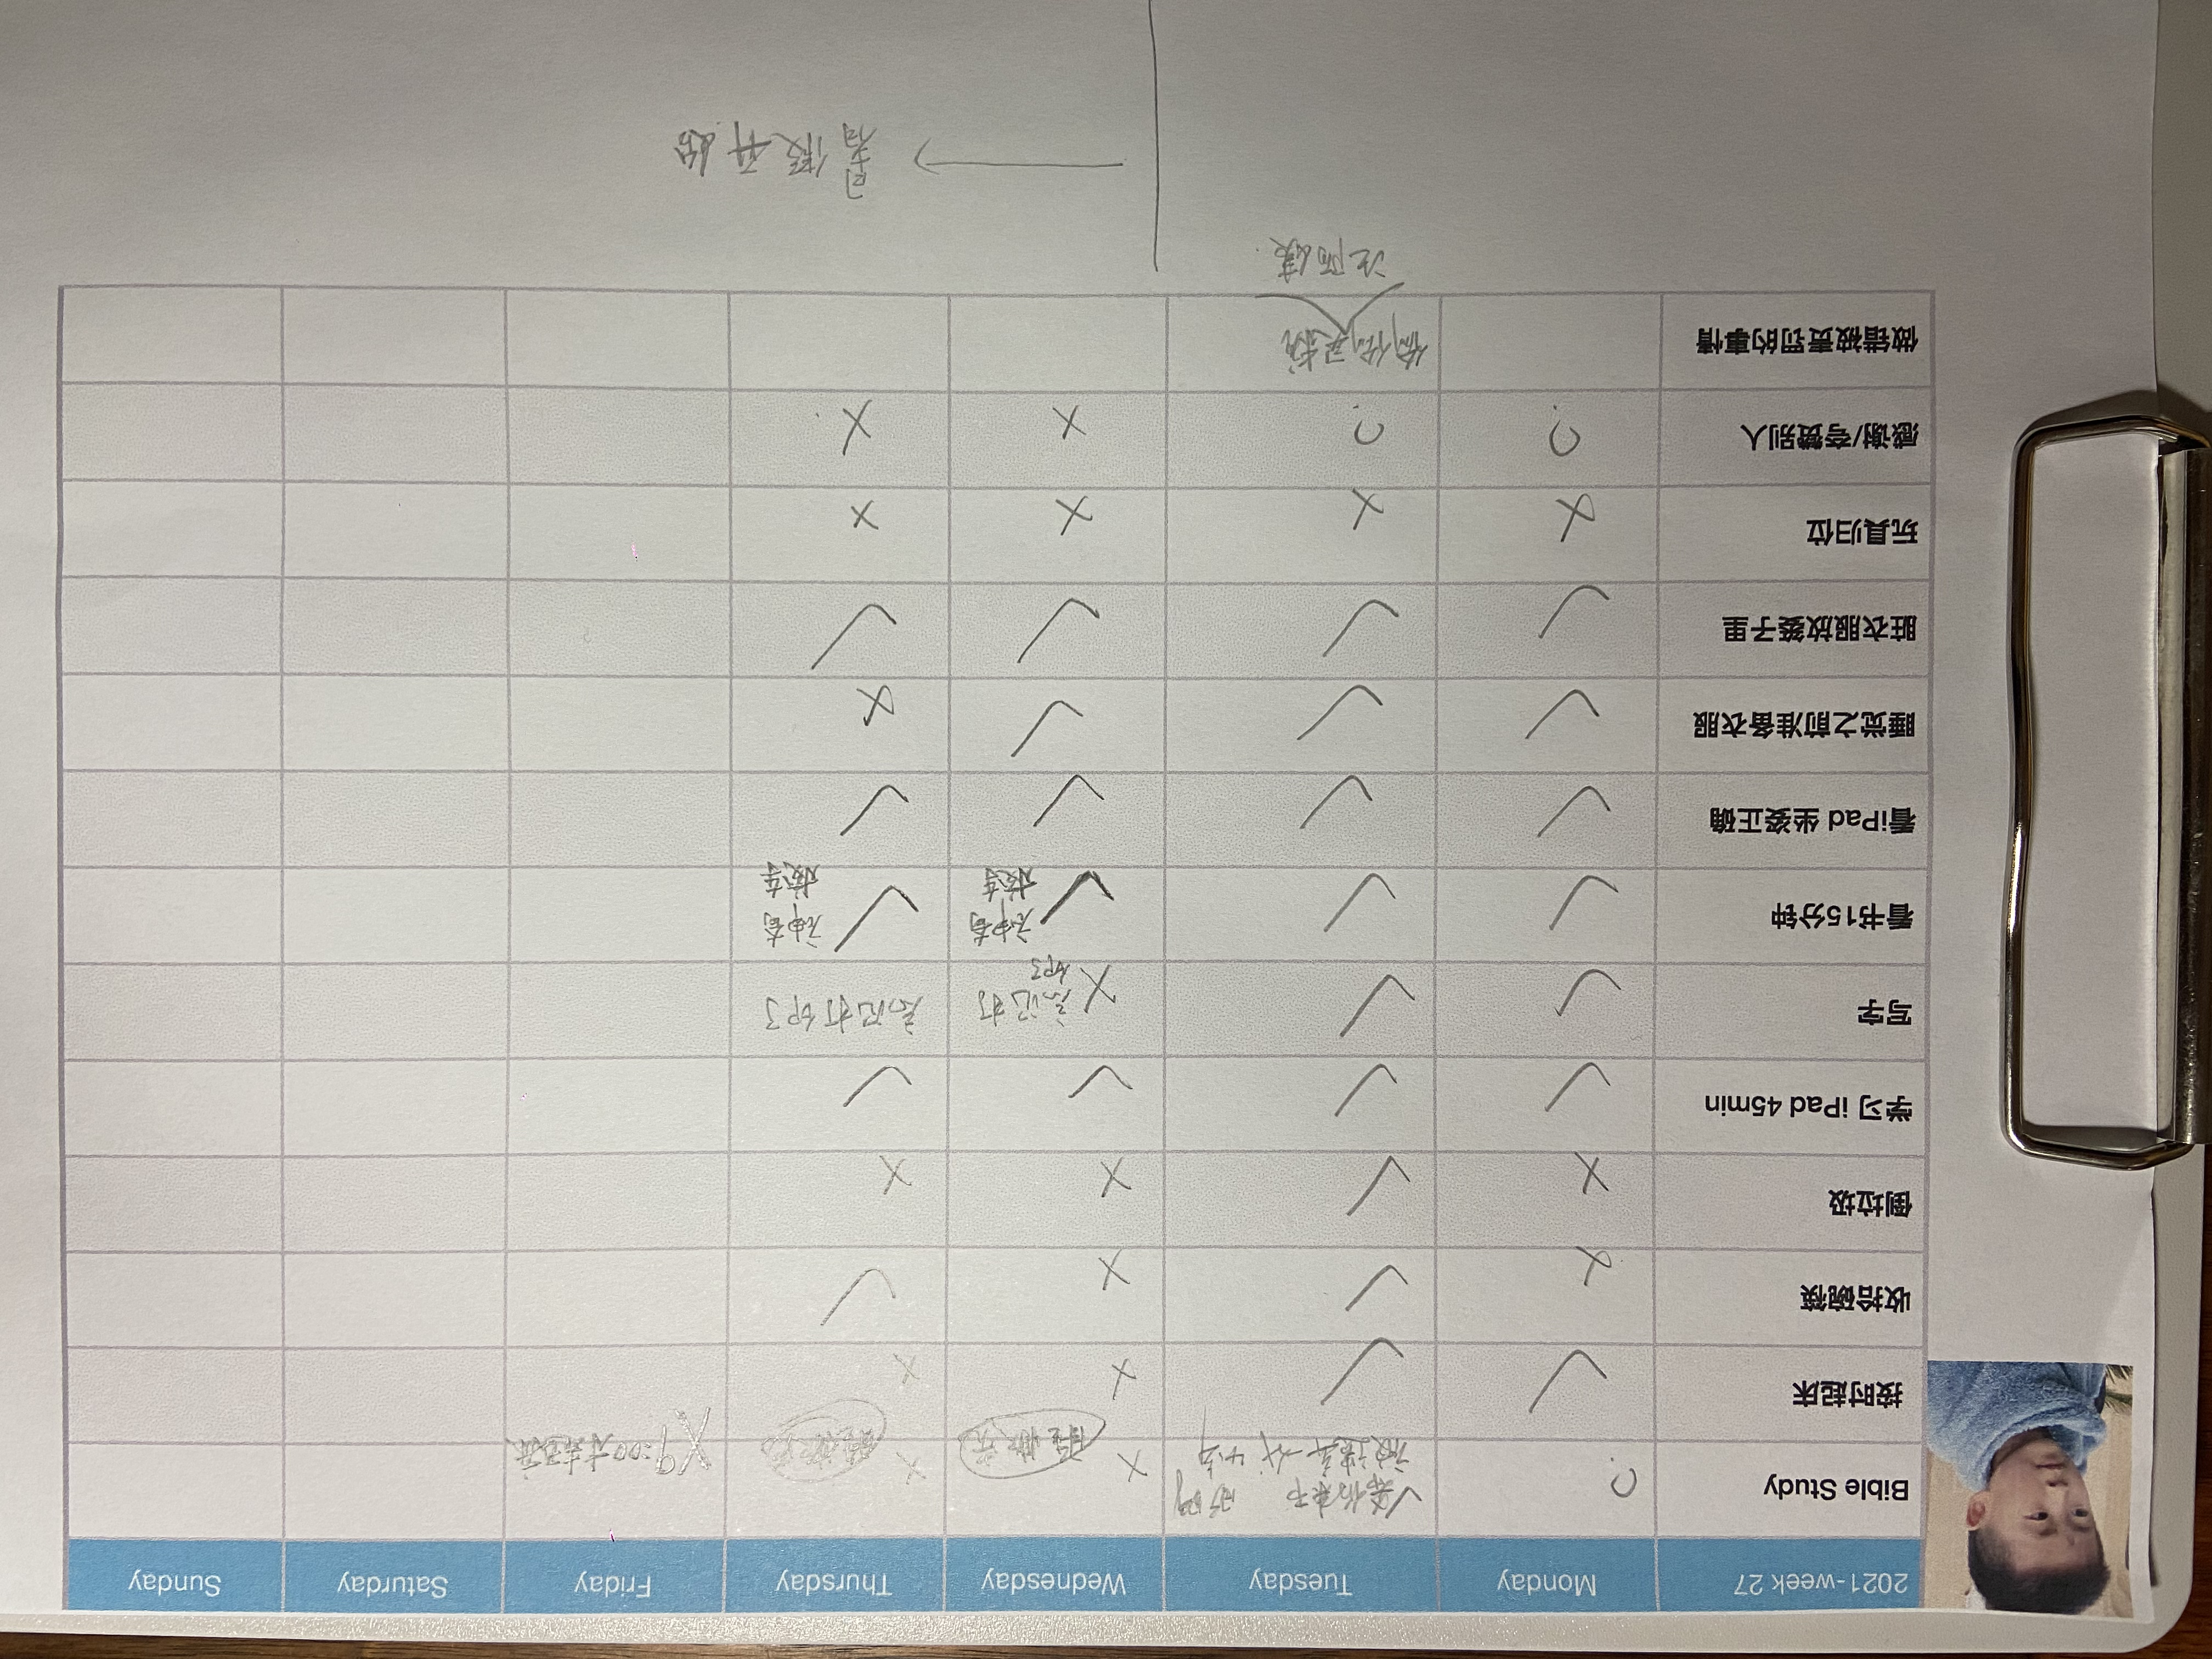 2021-week 27 Monday Tuesday Wednesday Thursday Friday Saturday Sunday
Bible Study ? ✓希伯来书
被遗弃一代 X 睡懒觉 X 睡懒觉 X 9:00才起床
按时起床 ✓ ✓ X X
收拾碗筷 X ✓ X ✓
倒垃圾 X ✓ X X
学习 iPad 45min ✓ ✓ ✓ ✓
写字 ✓ ✓ X 忘记打 忘记打印了
印了
看书15分钟 ✓ ✓ ✓ 神奇 ✓ 神奇
校车 校车
看iPad 坐姿正确 ✓ ✓ ✓ ✓
睡觉之前准备衣服 ✓ ✓ ✓ X
脏衣服放篓子里 ✓ ✓ ✓ ✓
玩具归位 X X X X
感谢/夸赞别人 ? ? X X
做错被责罚的事情 偷偷买糖
阿姨
暑假开始